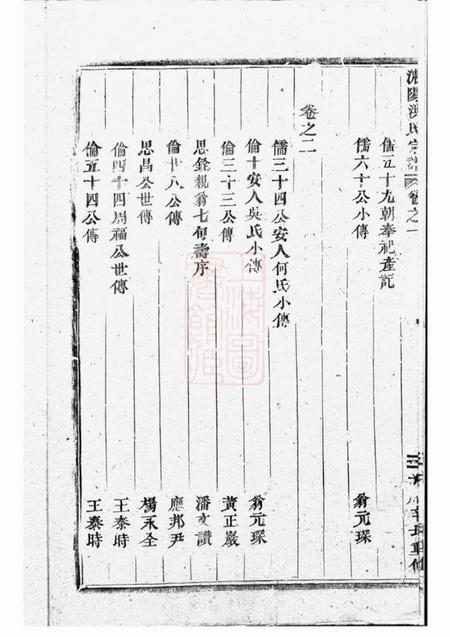 儒五十九朝奉祀產記
儒六十公小傳 翁元琛
卷之二
儒三十四公安人何氏小傳
倫十安人吳氏小傳 翁元琛
倫三十三公傳 黃正巖
思銓親翁七旬壽序 潘文讚
倫廿八公傳 應邦尹
思昌公世傳 楊永全
倫四十四周福公世傳 王泰時
倫五十四公傳 王泰時